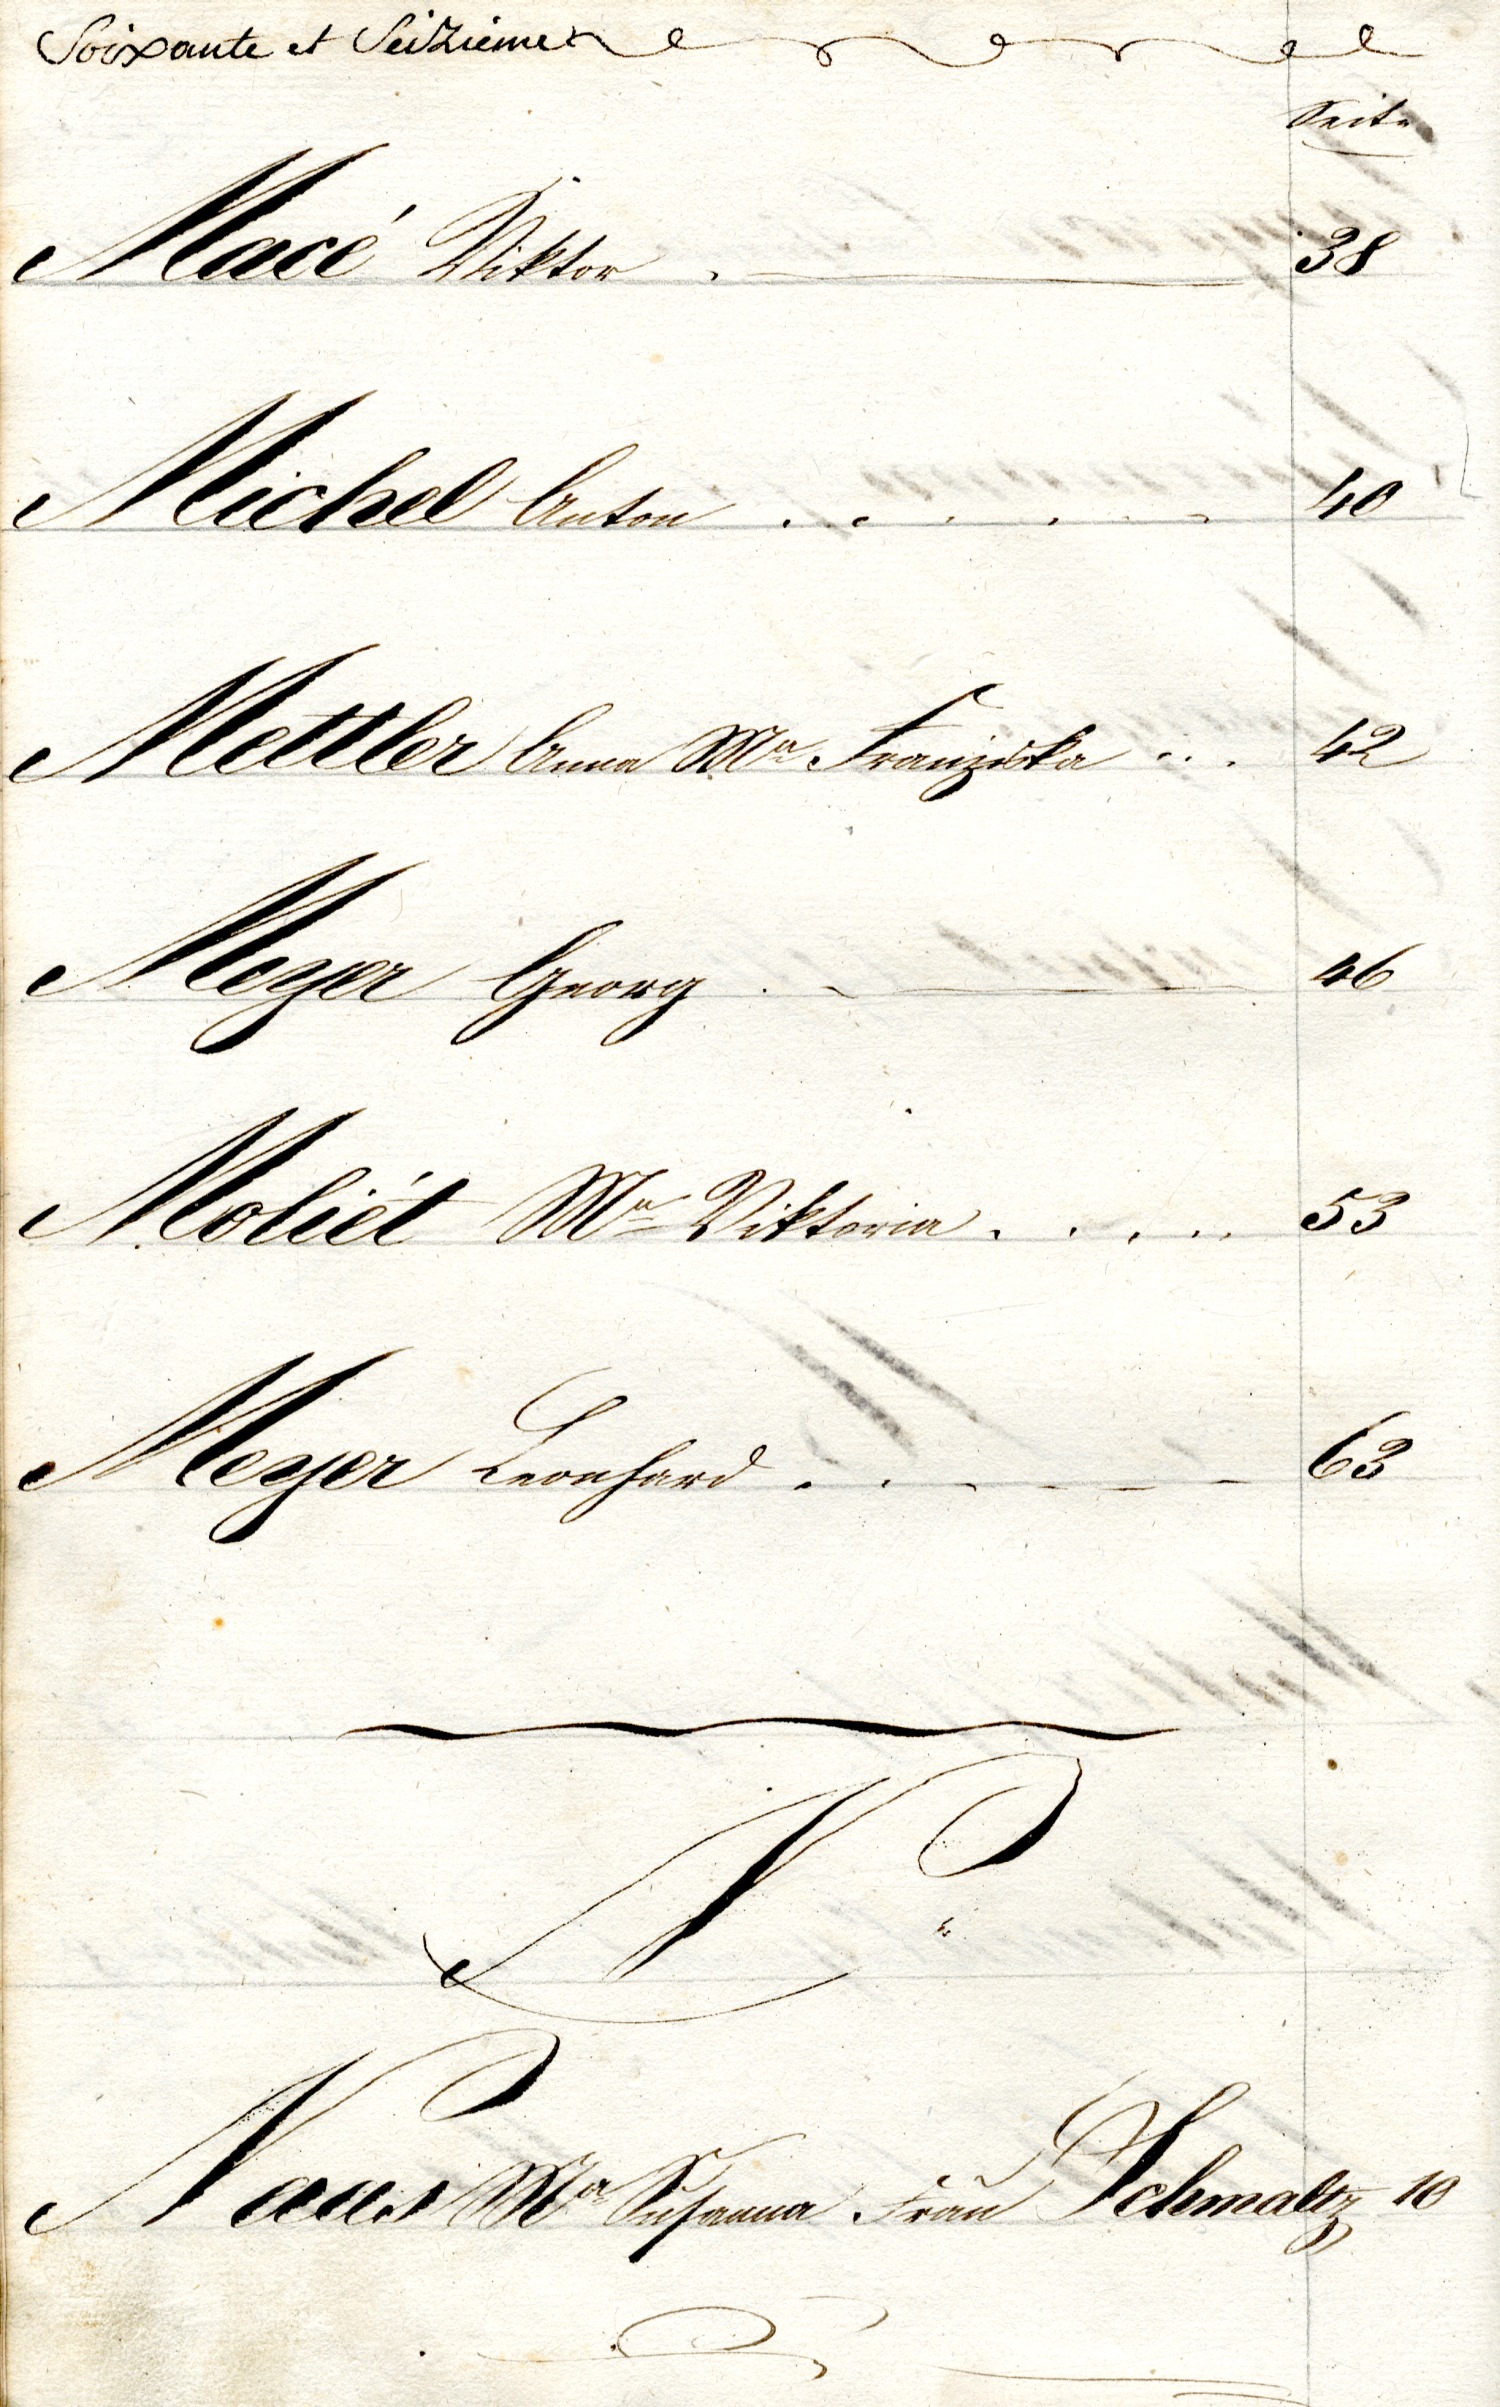 Soixante et Seizième
Seite
Macé Viktor . 38
Michel Anton . . . . . . 40
Mettler Anna Ma Franziska . . . 42
Meyer Georg . 46
Moliét Ma Viktoria . . . . . 53
Meyer Leonhard . . . . . . 63
N
Naus Ma Susanna Frau Schmaltz 10